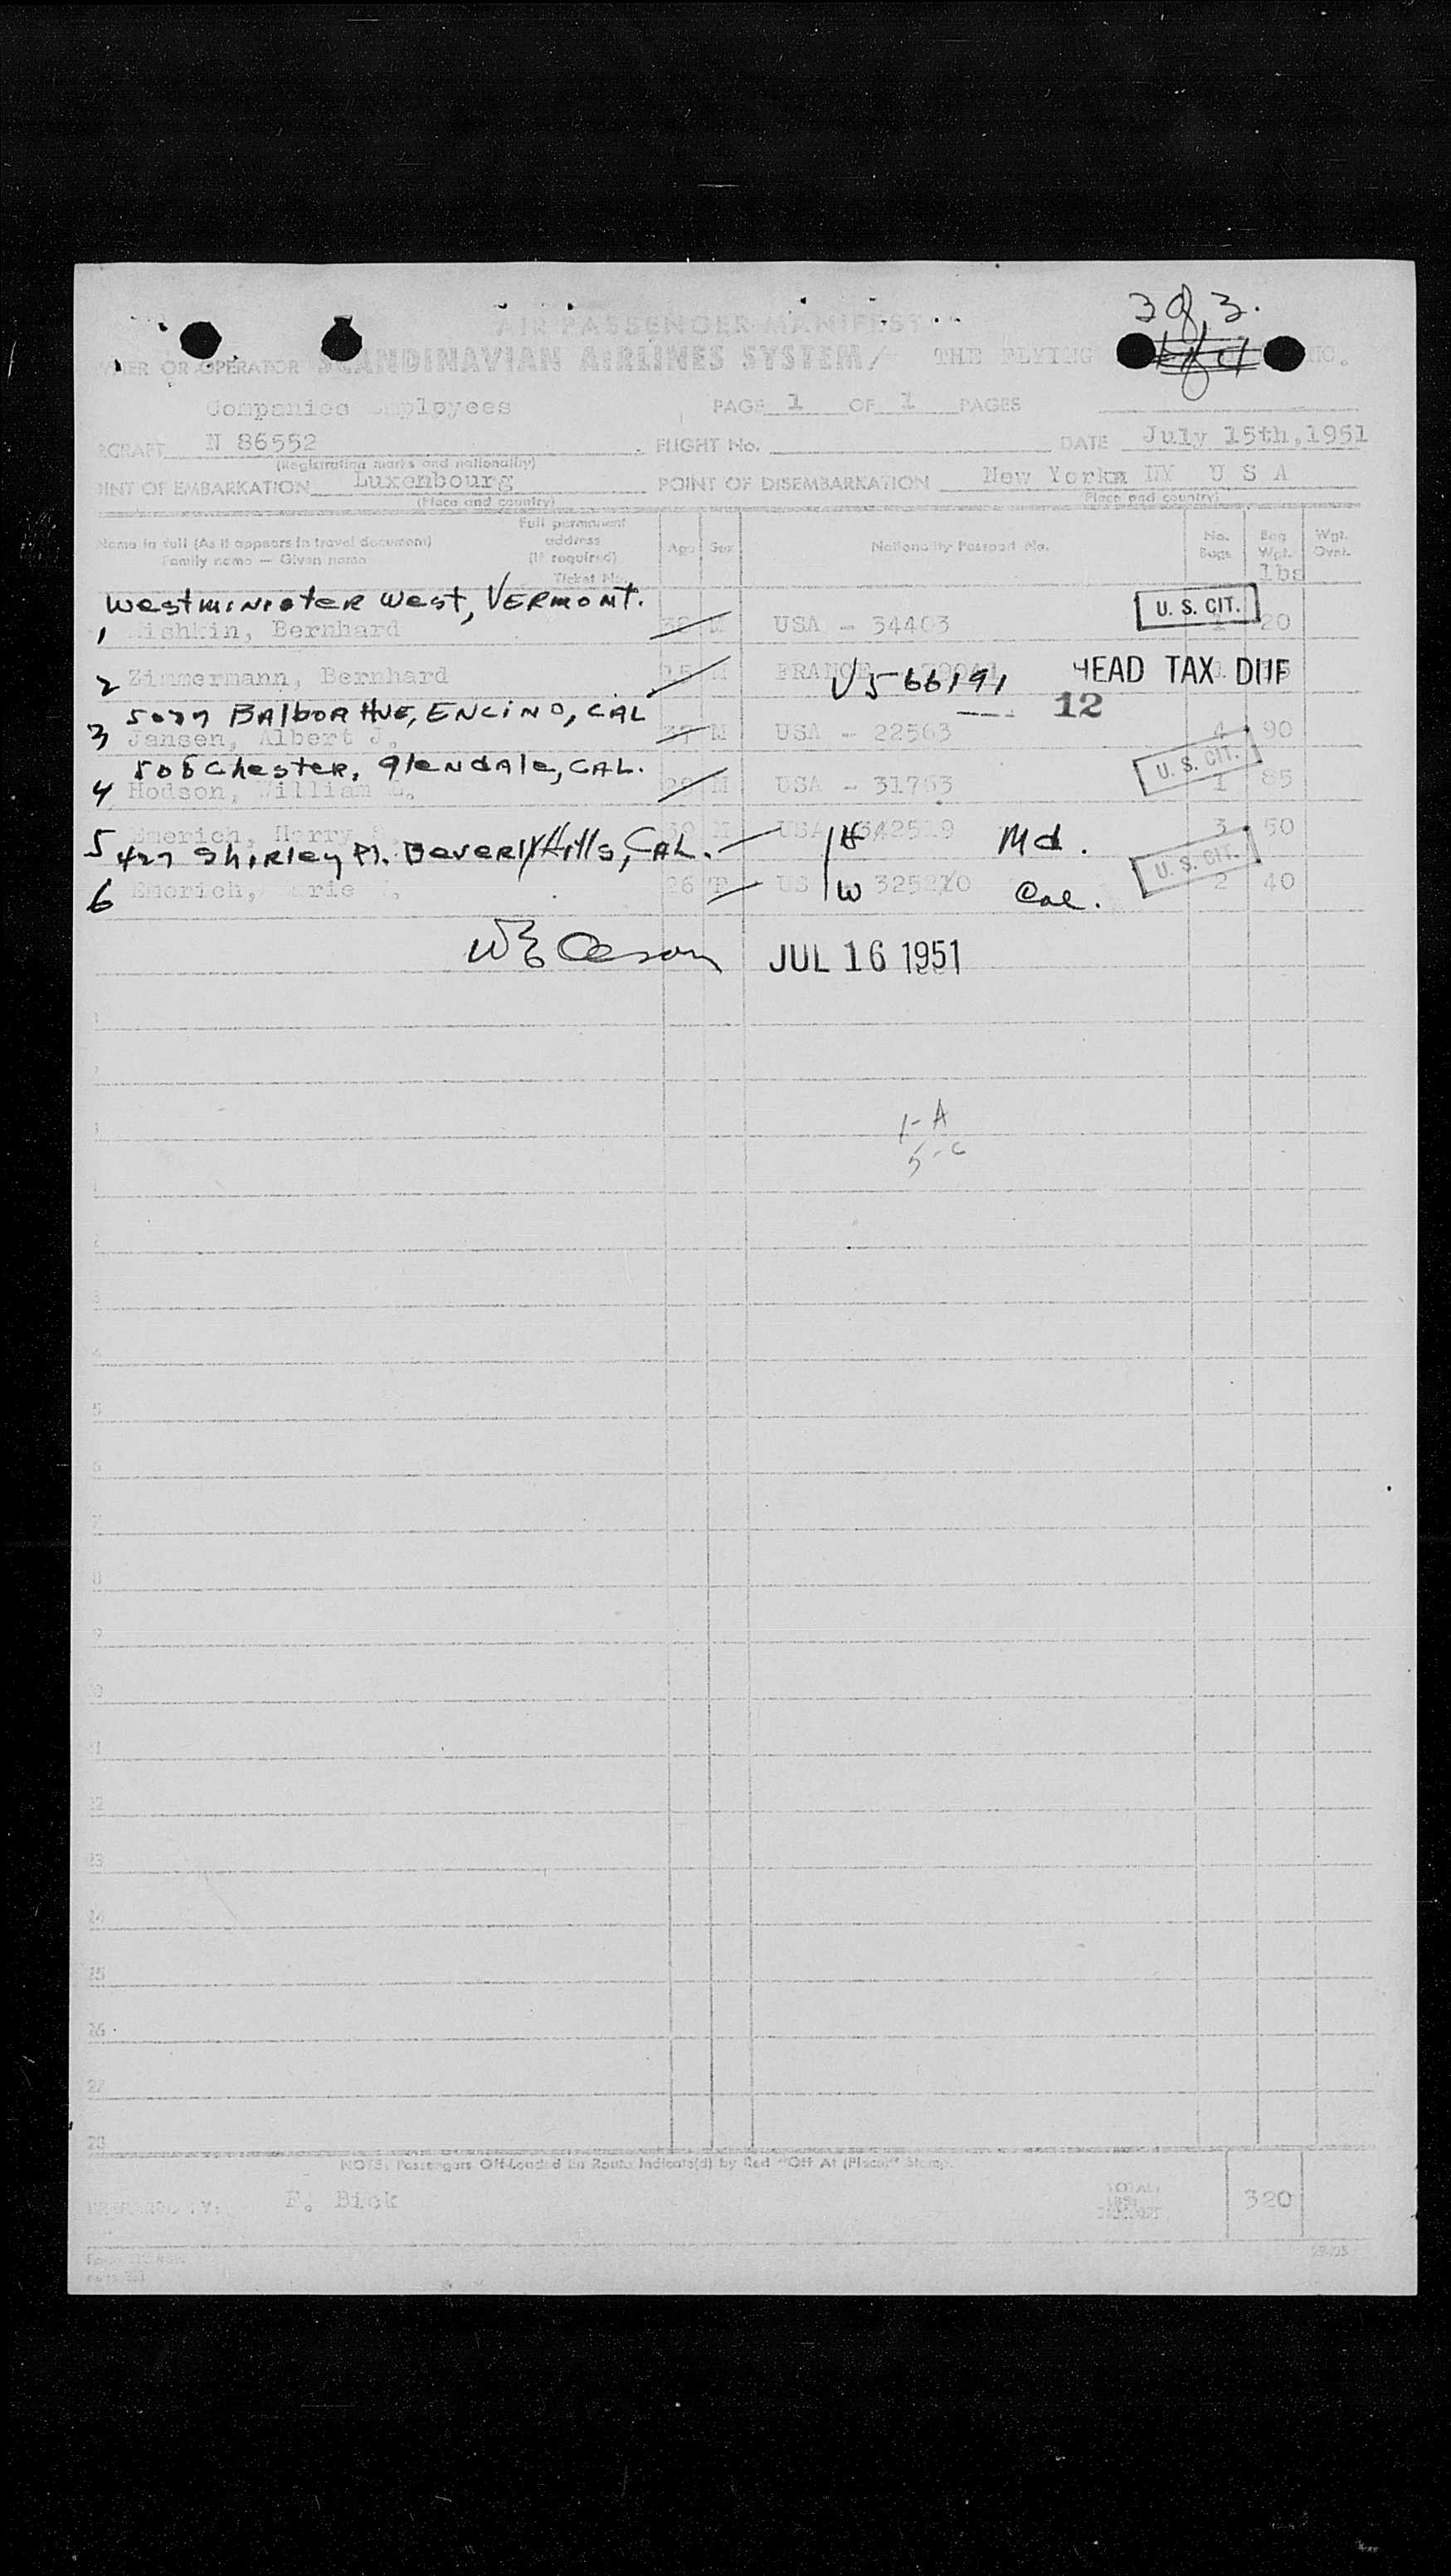 3 of 3.
AIR PASSENGER MANIFEST
OWNER OR OPERATOR SCANDINAVIAN AIRLINES SYSTEM/ THE FLYING INC.
Companies Employees PAGE 1 OF 1 PAGES
RCRAFT N 86552 FLIGHT No. DATE July 15th, 1951
(Registration marks and nationality)
OINT OF EMBARKATION Luxenbourg POINT OF DISEMBARKATION New York NY U S A
(Place and country) Place and country)
Name in full (As it appears in travel document) Family name — Given name
Full permanent address (If required) Ticket No.
Age Sex Nationality-Passport No. No. Bags Bag Wgt. lbs Wgt. Ovnt.
Westminister West, VERMONT.
1 Mishkin, Bernhard 38 M USA - 34403 U. S. CIT. 1 20
2 Zimmermann, Bernhard M FRANCE V5-66191 HEAD TAX DUE
12
5077 BAlboA AVE, ENCINO, CAL
3 Jansen, Albert J. 37 M USA - 22563 4 90
508 Chester, Glendale, CAL.
4 Hodson, William M USA - 31763 U. S. CIT. 1 85
5 Emerich, Harry 39 M USA 342519 H Md. 3 50
427 Shirley Pl. Beverly Hills, CAL.
6 Emerich, Marie 26 F US W 325210 Cal. U. S. CIT. 2 40
JUL 16 1951
1-A
5-C
1
2
3
1
2
3
4
5
6
7
8
9
20
21
22
23
24
25
26
27
28
NOTE: Passengers Off-Loaded En Route Indicate(d) by Red "Off At (Place)" Stamp.
PREPARED BY: F. Bick TOTAL: 320